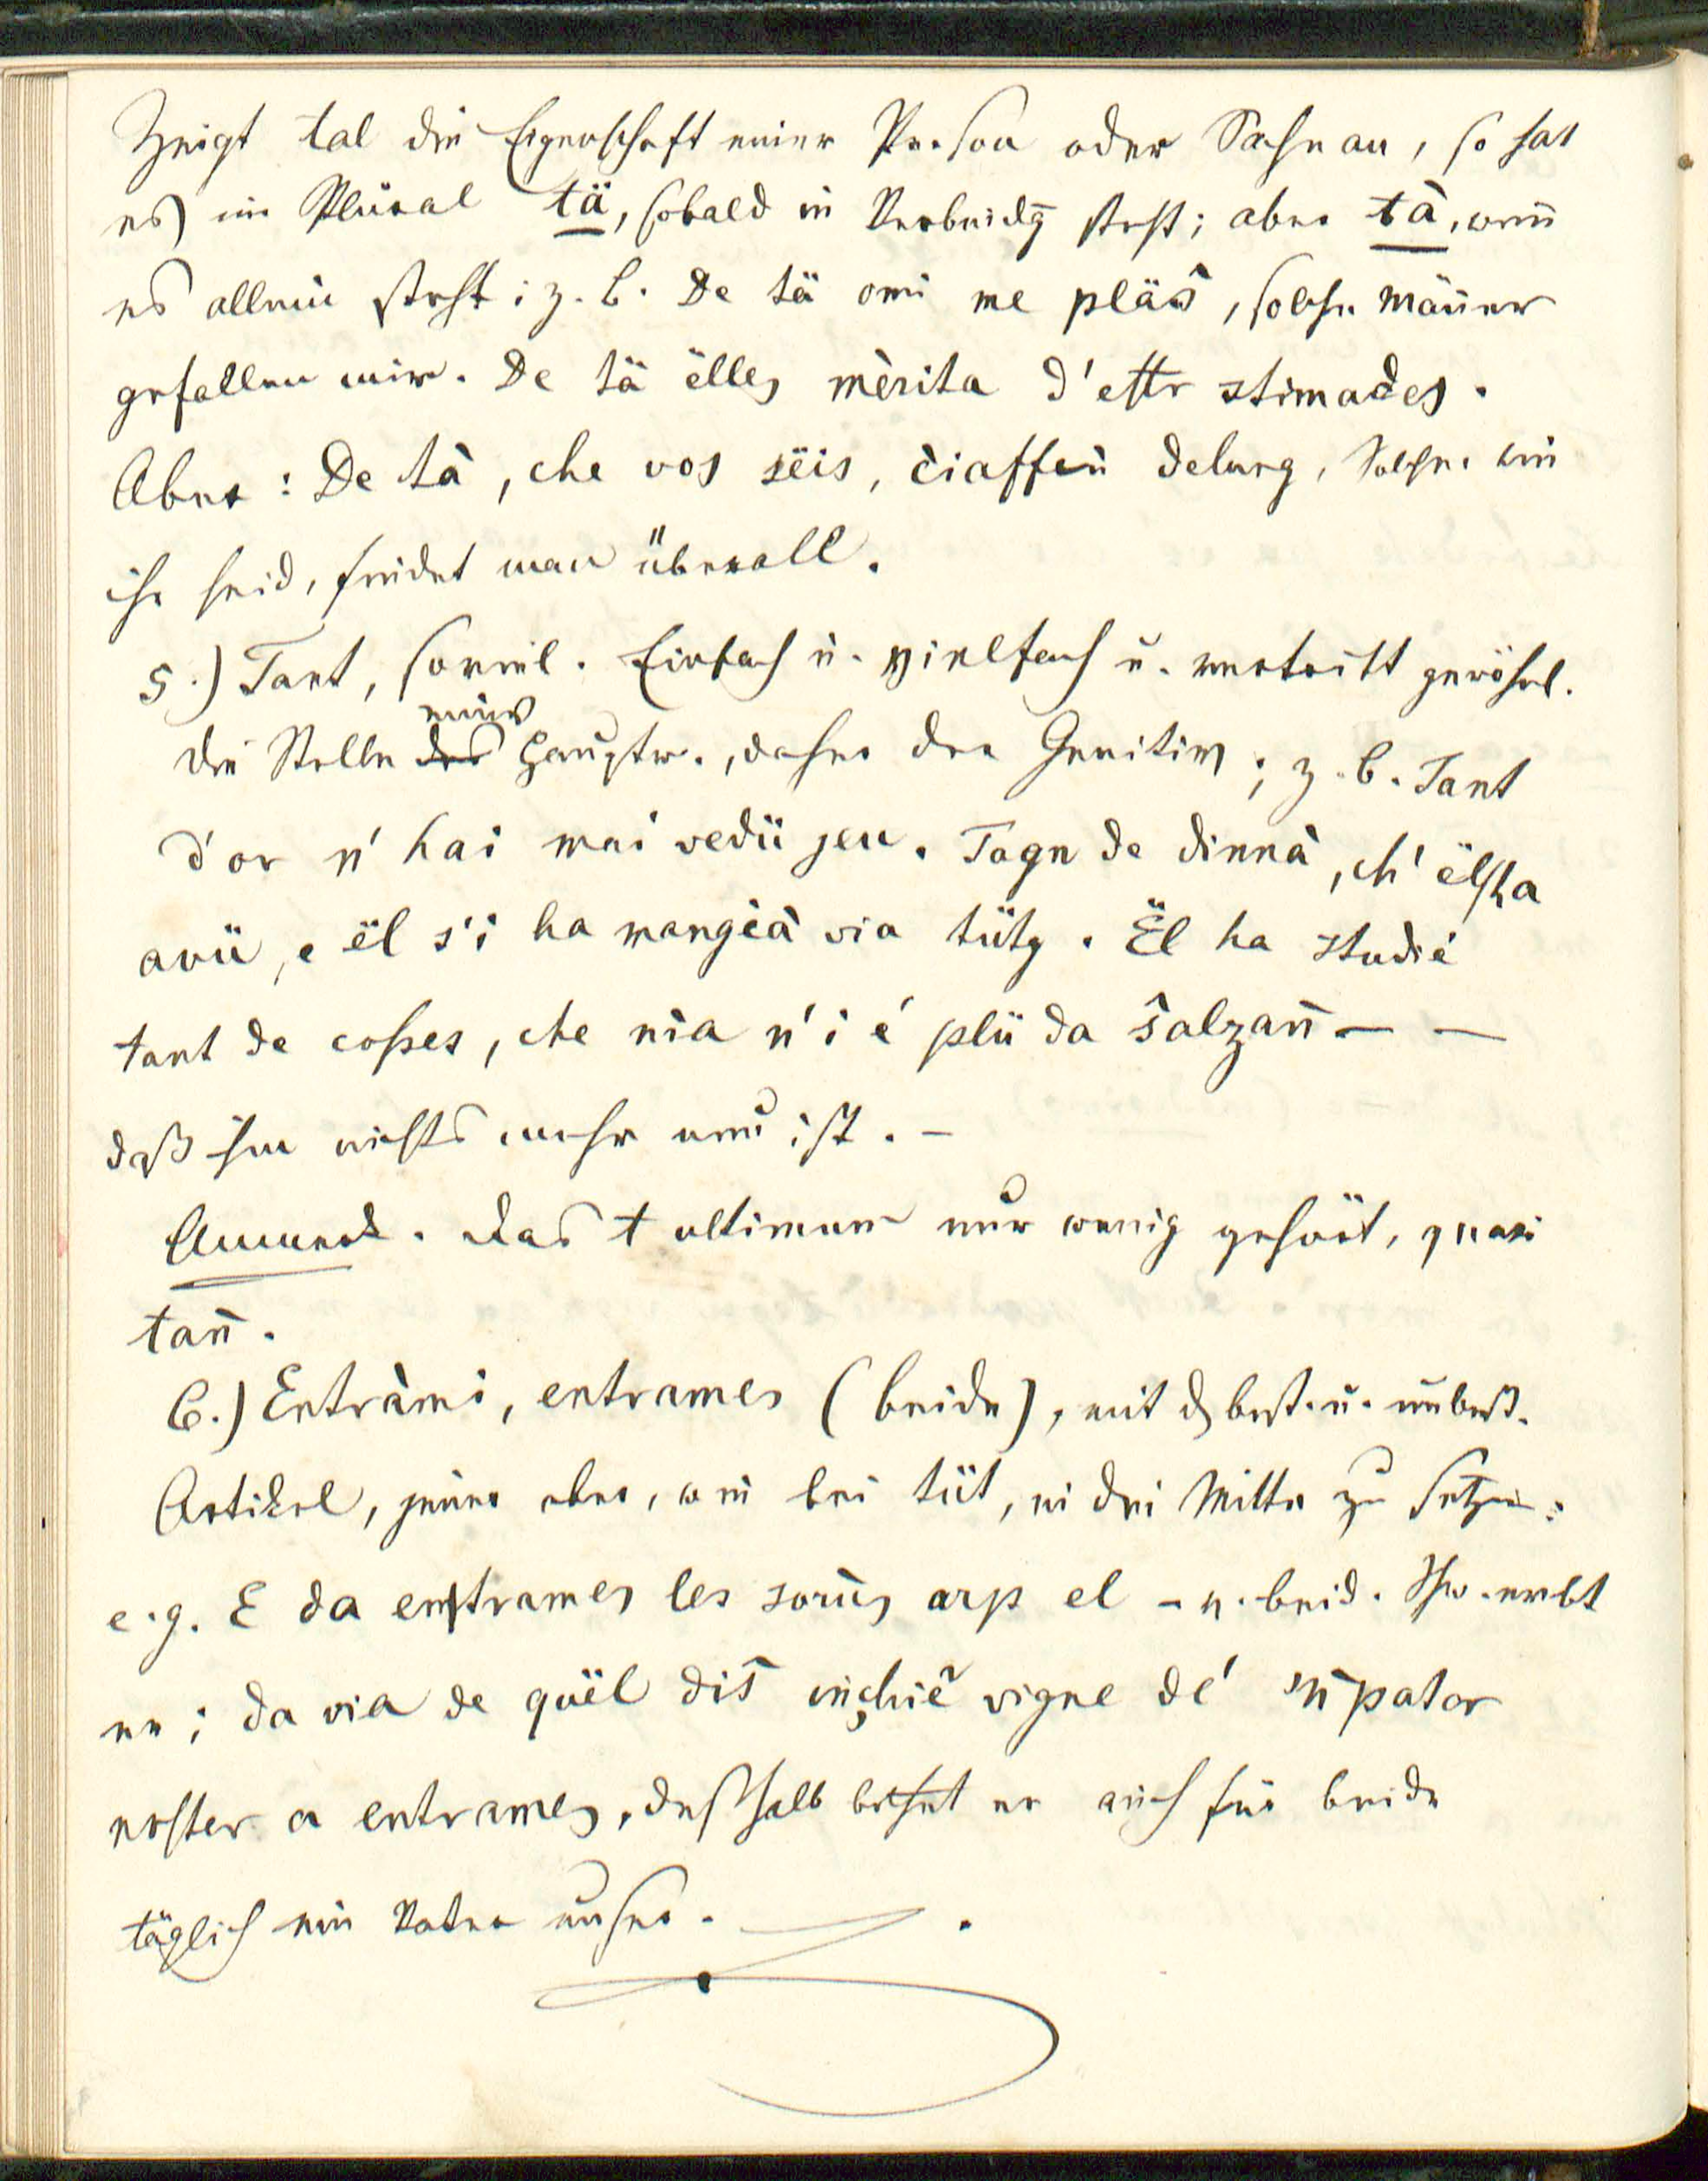 Zeigt tal die Eigenschaft einer Person oder Sache an, so hat
es im Plural tä, sobald in Verbindg steht; aber tà, wen̄
es allein steht; z. B. De tä omi me pläs̀, solche Män̄er
gefallen mir. De tä ëlles mèrita d'ettr stimades.
Aber: De tà, che vos sëis, c̀iaffen̄ delung, Solche wie
ihr seid, findet man überall.
5.) Tant, soviel. Einfach u. vielfach u. vertritt gewöhnl.
eines
die Stelle des Hauptw., daher der Genitiv; z. B. Tant
d'or n' hai mai vedü jeu. Tagn de dinnà, ch' ël ha
avü, e ël s'i ha mangèà via tütg. Ël ha studié
tant de coßes, che nìa n' i é plü da s̀alzan̄ — —
daß ihm nichts mehr neu ist. —
Anmerk. Das t ultimum nur wenig gehört, quasi
tan̄.
6.) Entràmi, entrames (beide), mit d best. u. unbest.
Artikel, jener aber, wie bei tüt, in die Mitte zu setzen:
e.g. E da entrames les sorus arp el - v. beid. Schw. erbt
er; da via de quël dis̀ inchiè vigne dé 'n pator
noster a entrames, deßhalb bethet er auch für beide
täglich ein Vater unser.